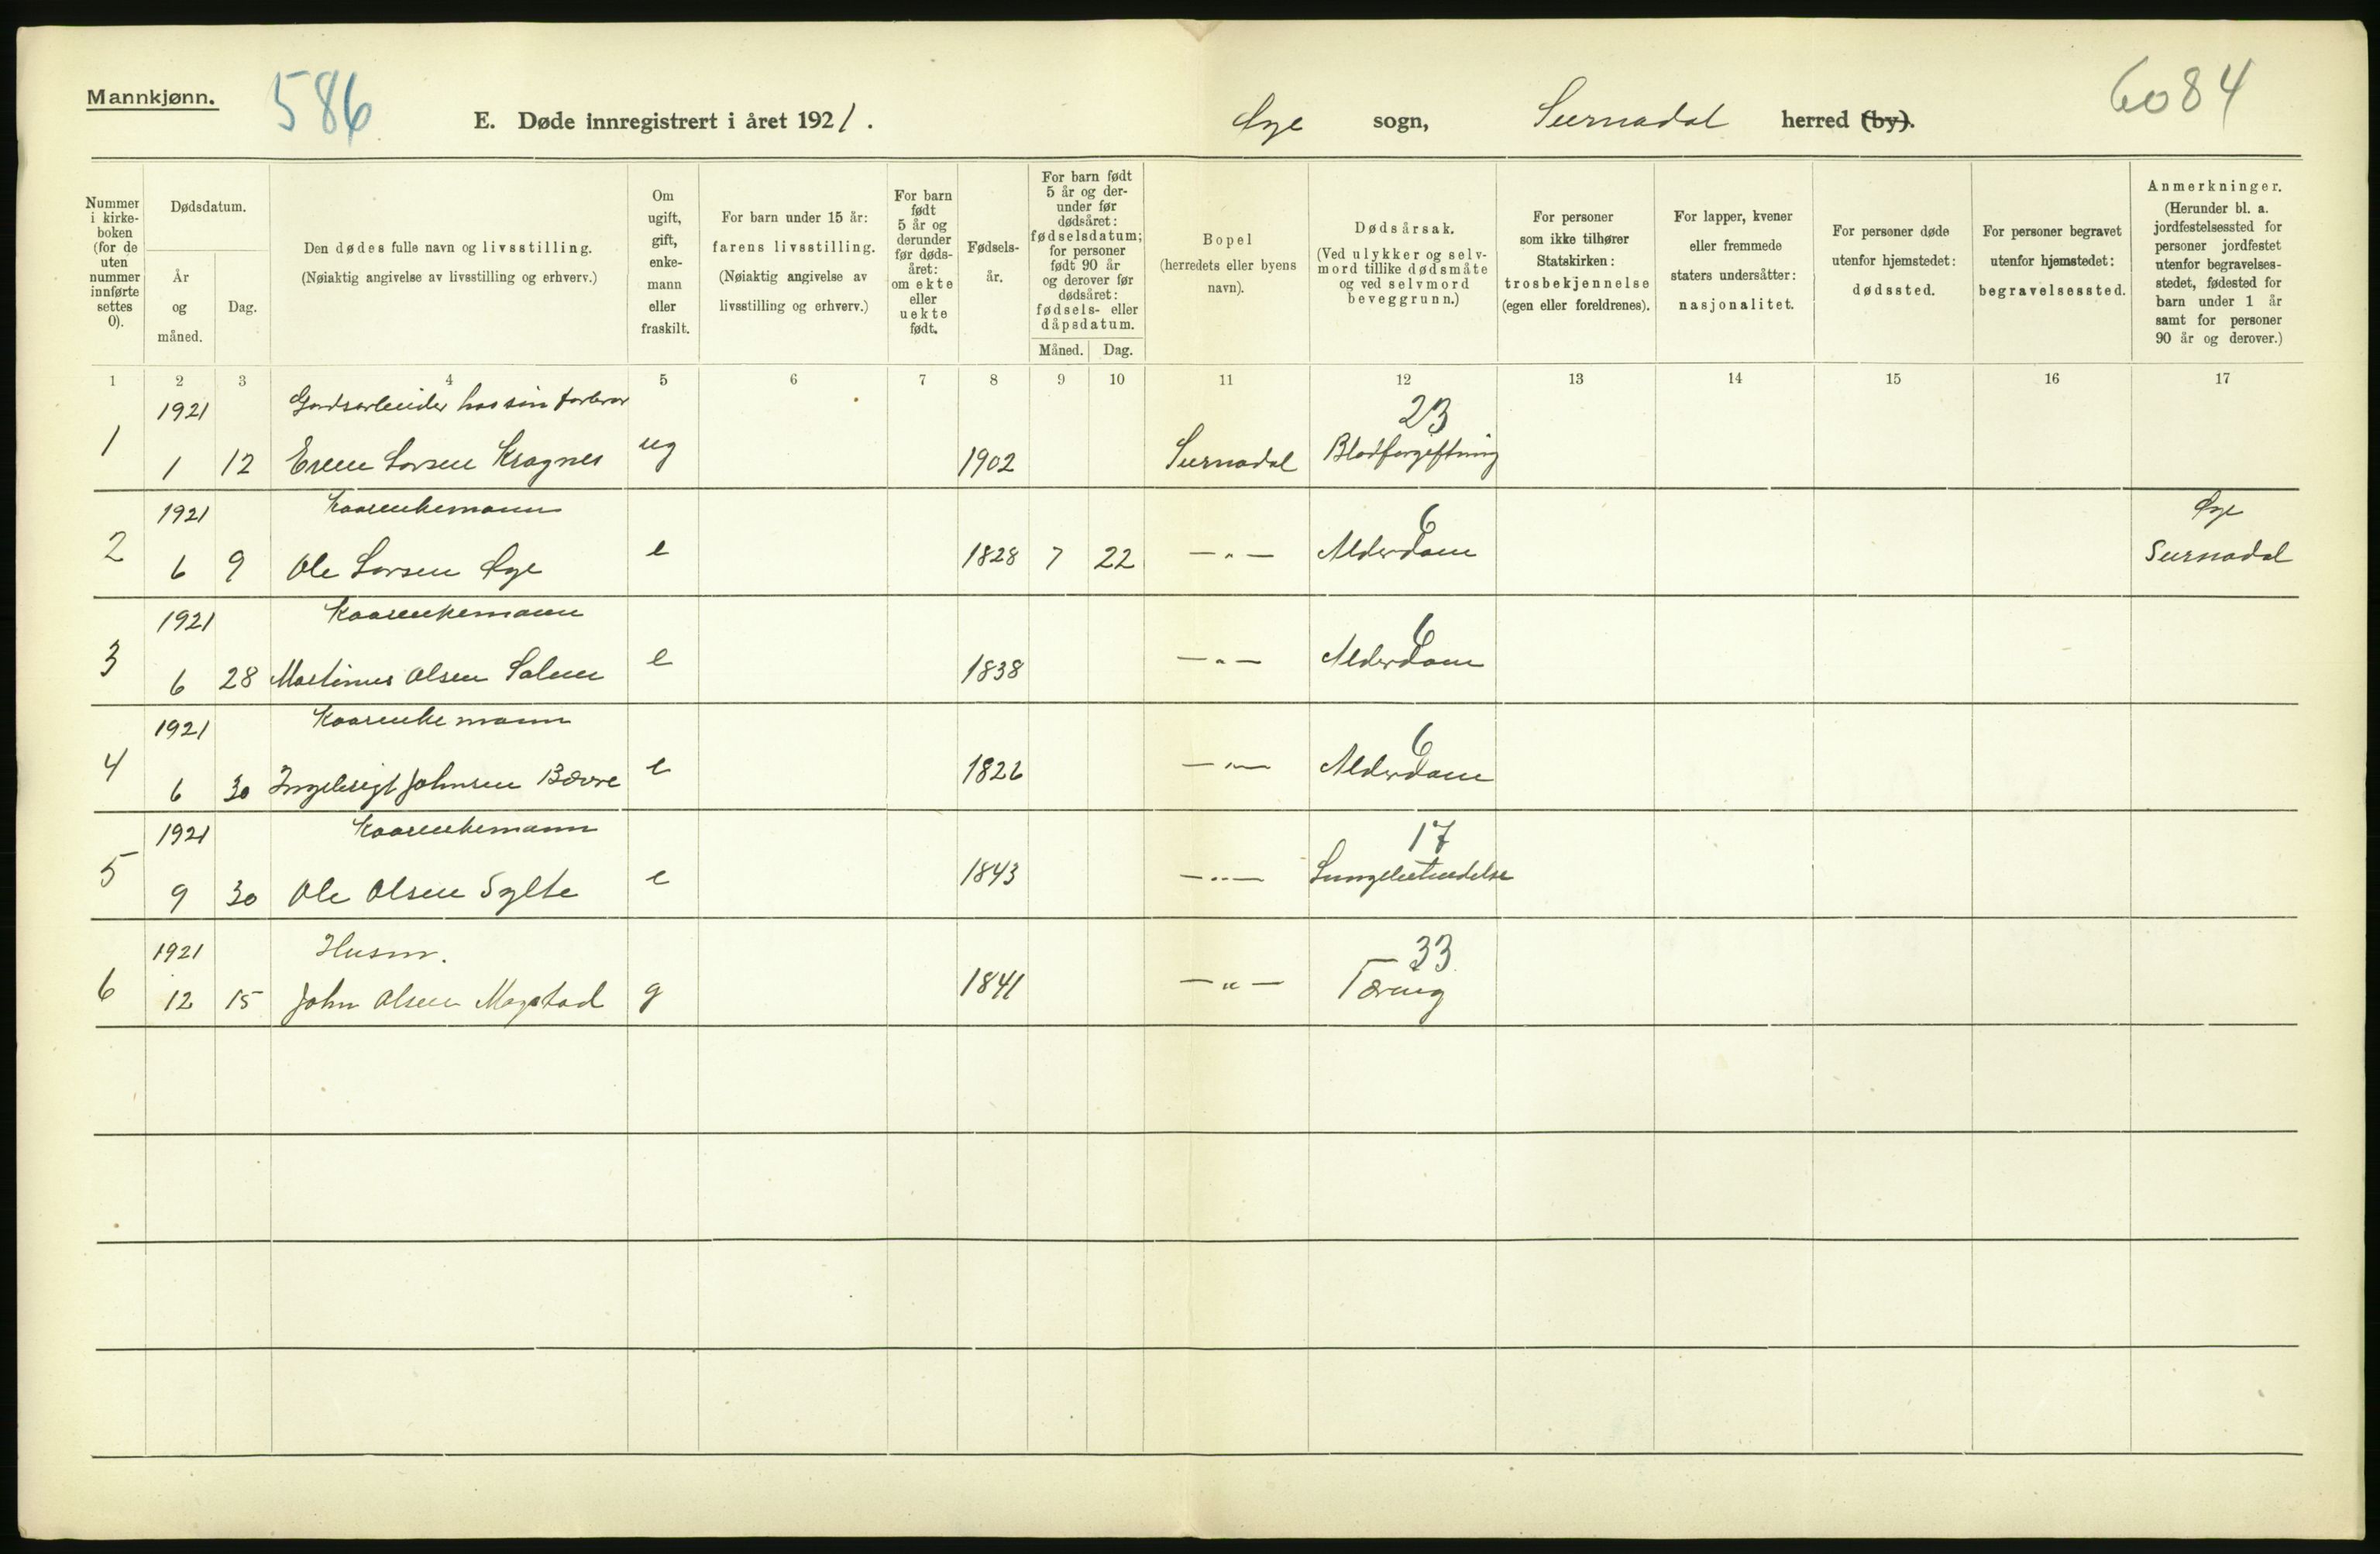 Mannkjønn.
586
E. Døde innregistrert i året 1921.
Øye sogn, Surnadal herred (by).
6084
Nummer i kirke-boken (for de uten nummer innførte settes 0).
Dødsdatum.
År og måned.
Dag.
Den dødes fulle navn og livsstilling.
(Nøiaktig angivelse av livsstilling og erhverv.)
Om ugift, gift, enke-mann eller fraskilt.
For barn under 15 år:
farens livsstilling.
(Nøiaktig angivelse av livsstilling og erhverv.)
For barn født 5 år og derunder før døds-året: om ekte eller uekte født.
Fødsels-år.
For barn født 5 år og der-under før dødsåret: fødselsdatum; for personer født 90 år og derover før dødsåret: fødsels- eller dåpsdatum.
Måned. Dag.
Bopel
(herredets eller byens navn).
Dødsårsak.
(Ved ulykker og selv-mord tillike dødsmåte og ved selvmord beveggrunn.)
For personer som ikke tilhører Statskirken: trosbekjennelse (egen eller foreldrenes).
For lapper, kvener eller fremmede staters undersåtter: nasjonalitet.
For personer døde utenfor hjemstedet: dødssted.
For personer begravet utenfor hjemstedet: begravelsessted.
Anmerkninger.
(Herunder bl. a. jordfestelsessted for personer jordfestet utenfor begravelses-stedet, fødested for barn under 1 år samt for personer 90 år og derover.)
1 2 3 4 5 6 7 8 9 10 11 12 13 14 15 16 17
1921 Gardsarbeider hos sin farbror 23
1 1 12 Even Larsen Kragnes ug 1902 Surnadal Blodforgiftning
1921 Kaarenkemann 6 Øye
2 6 9 Ole Larsen Øye e 1828 7 22 — " — Alderdom Surnadal
1921 Kaarenkemann 6
3 6 28 Martinus Olsen Salen e 1838 — " — Alderdom
1921 Kaarenkemann 6
4 6 30 Johnsen Bævre e 1826 — " — Alderdom
1921 Kaarenkemann 17
5 9 30 Ole Olsen Sylte e 1843 — " — Lungebetendelse
1921 Husm. 33
6 12 15 John Olsen Mogstad g 1841 — " — Tæring